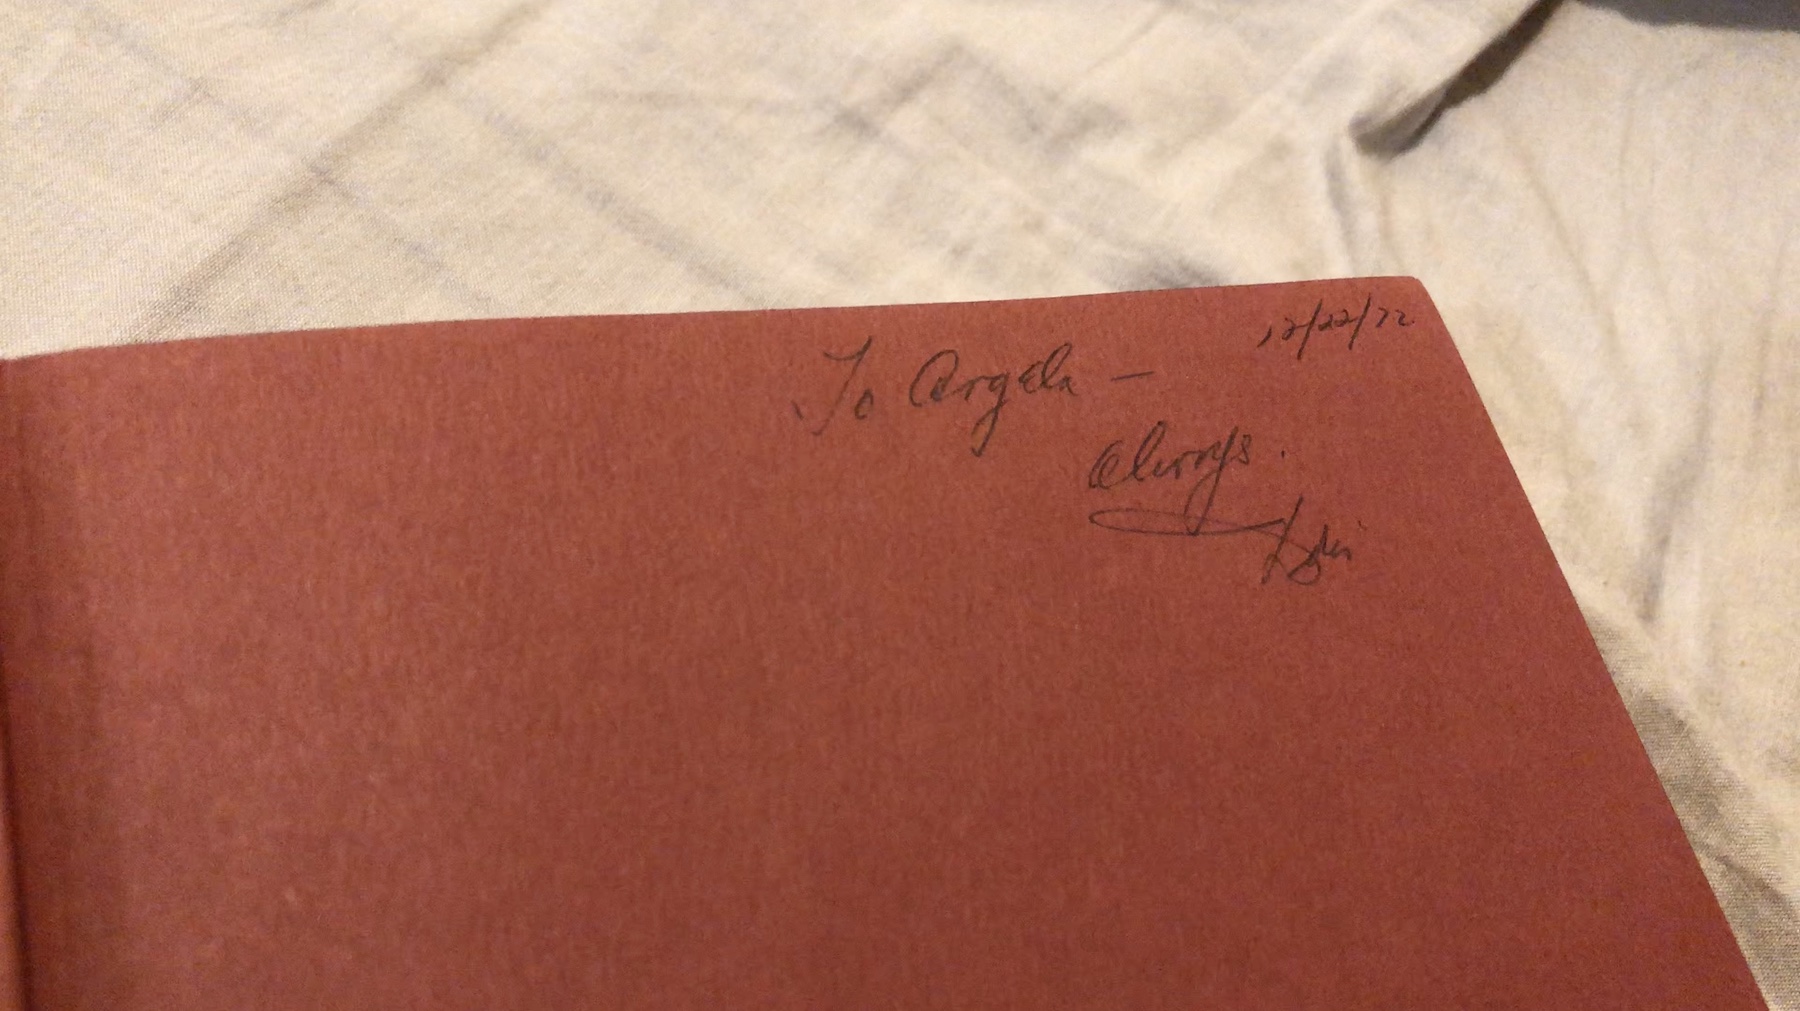 12/22/72
To Angela —
Always.